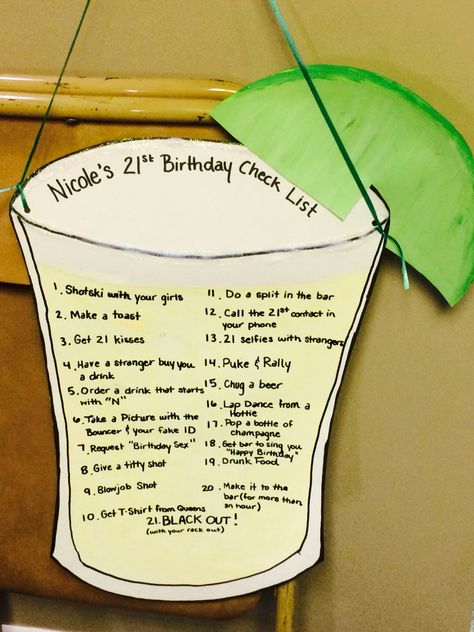 Nicole's 21st Birthday Check List
1. Shotski with your girls
2. Make a toast
3. Get 21 kisses
4. Have a stranger buy you
a drink
5. Order a drink that starts
with "N"
6. Take a Picture with the
Bouncer & your fake ID
7. Request "Birthday Sex"
8. Give a titty shot
9. Blowjob Shot
10. Get T-Shirt from Queens
11. Do a split in the bar
12. Call the 21st contact in
your phone
13. 21 selfies with strangers
14. Puke & Rally
15. Chug a beer
16. Lap Dance from a
Hottie
17. Pop a bottle of
champagne
18. Get bar to sing you
"Happy Birthday"
19. Drunk Food
20. Make it to the
bar (for more than
an hour)
21. BLACK OUT!
(with your rack out)